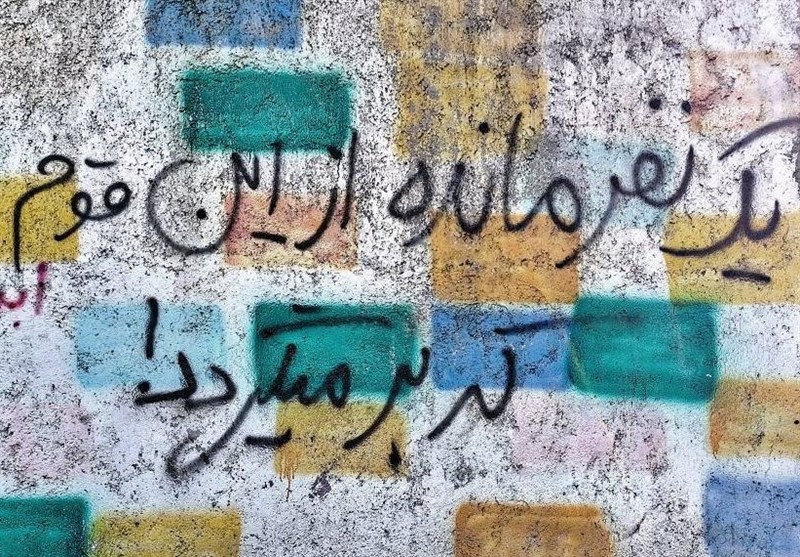 یک نفر مانده از این قوم
که برمیگردد!